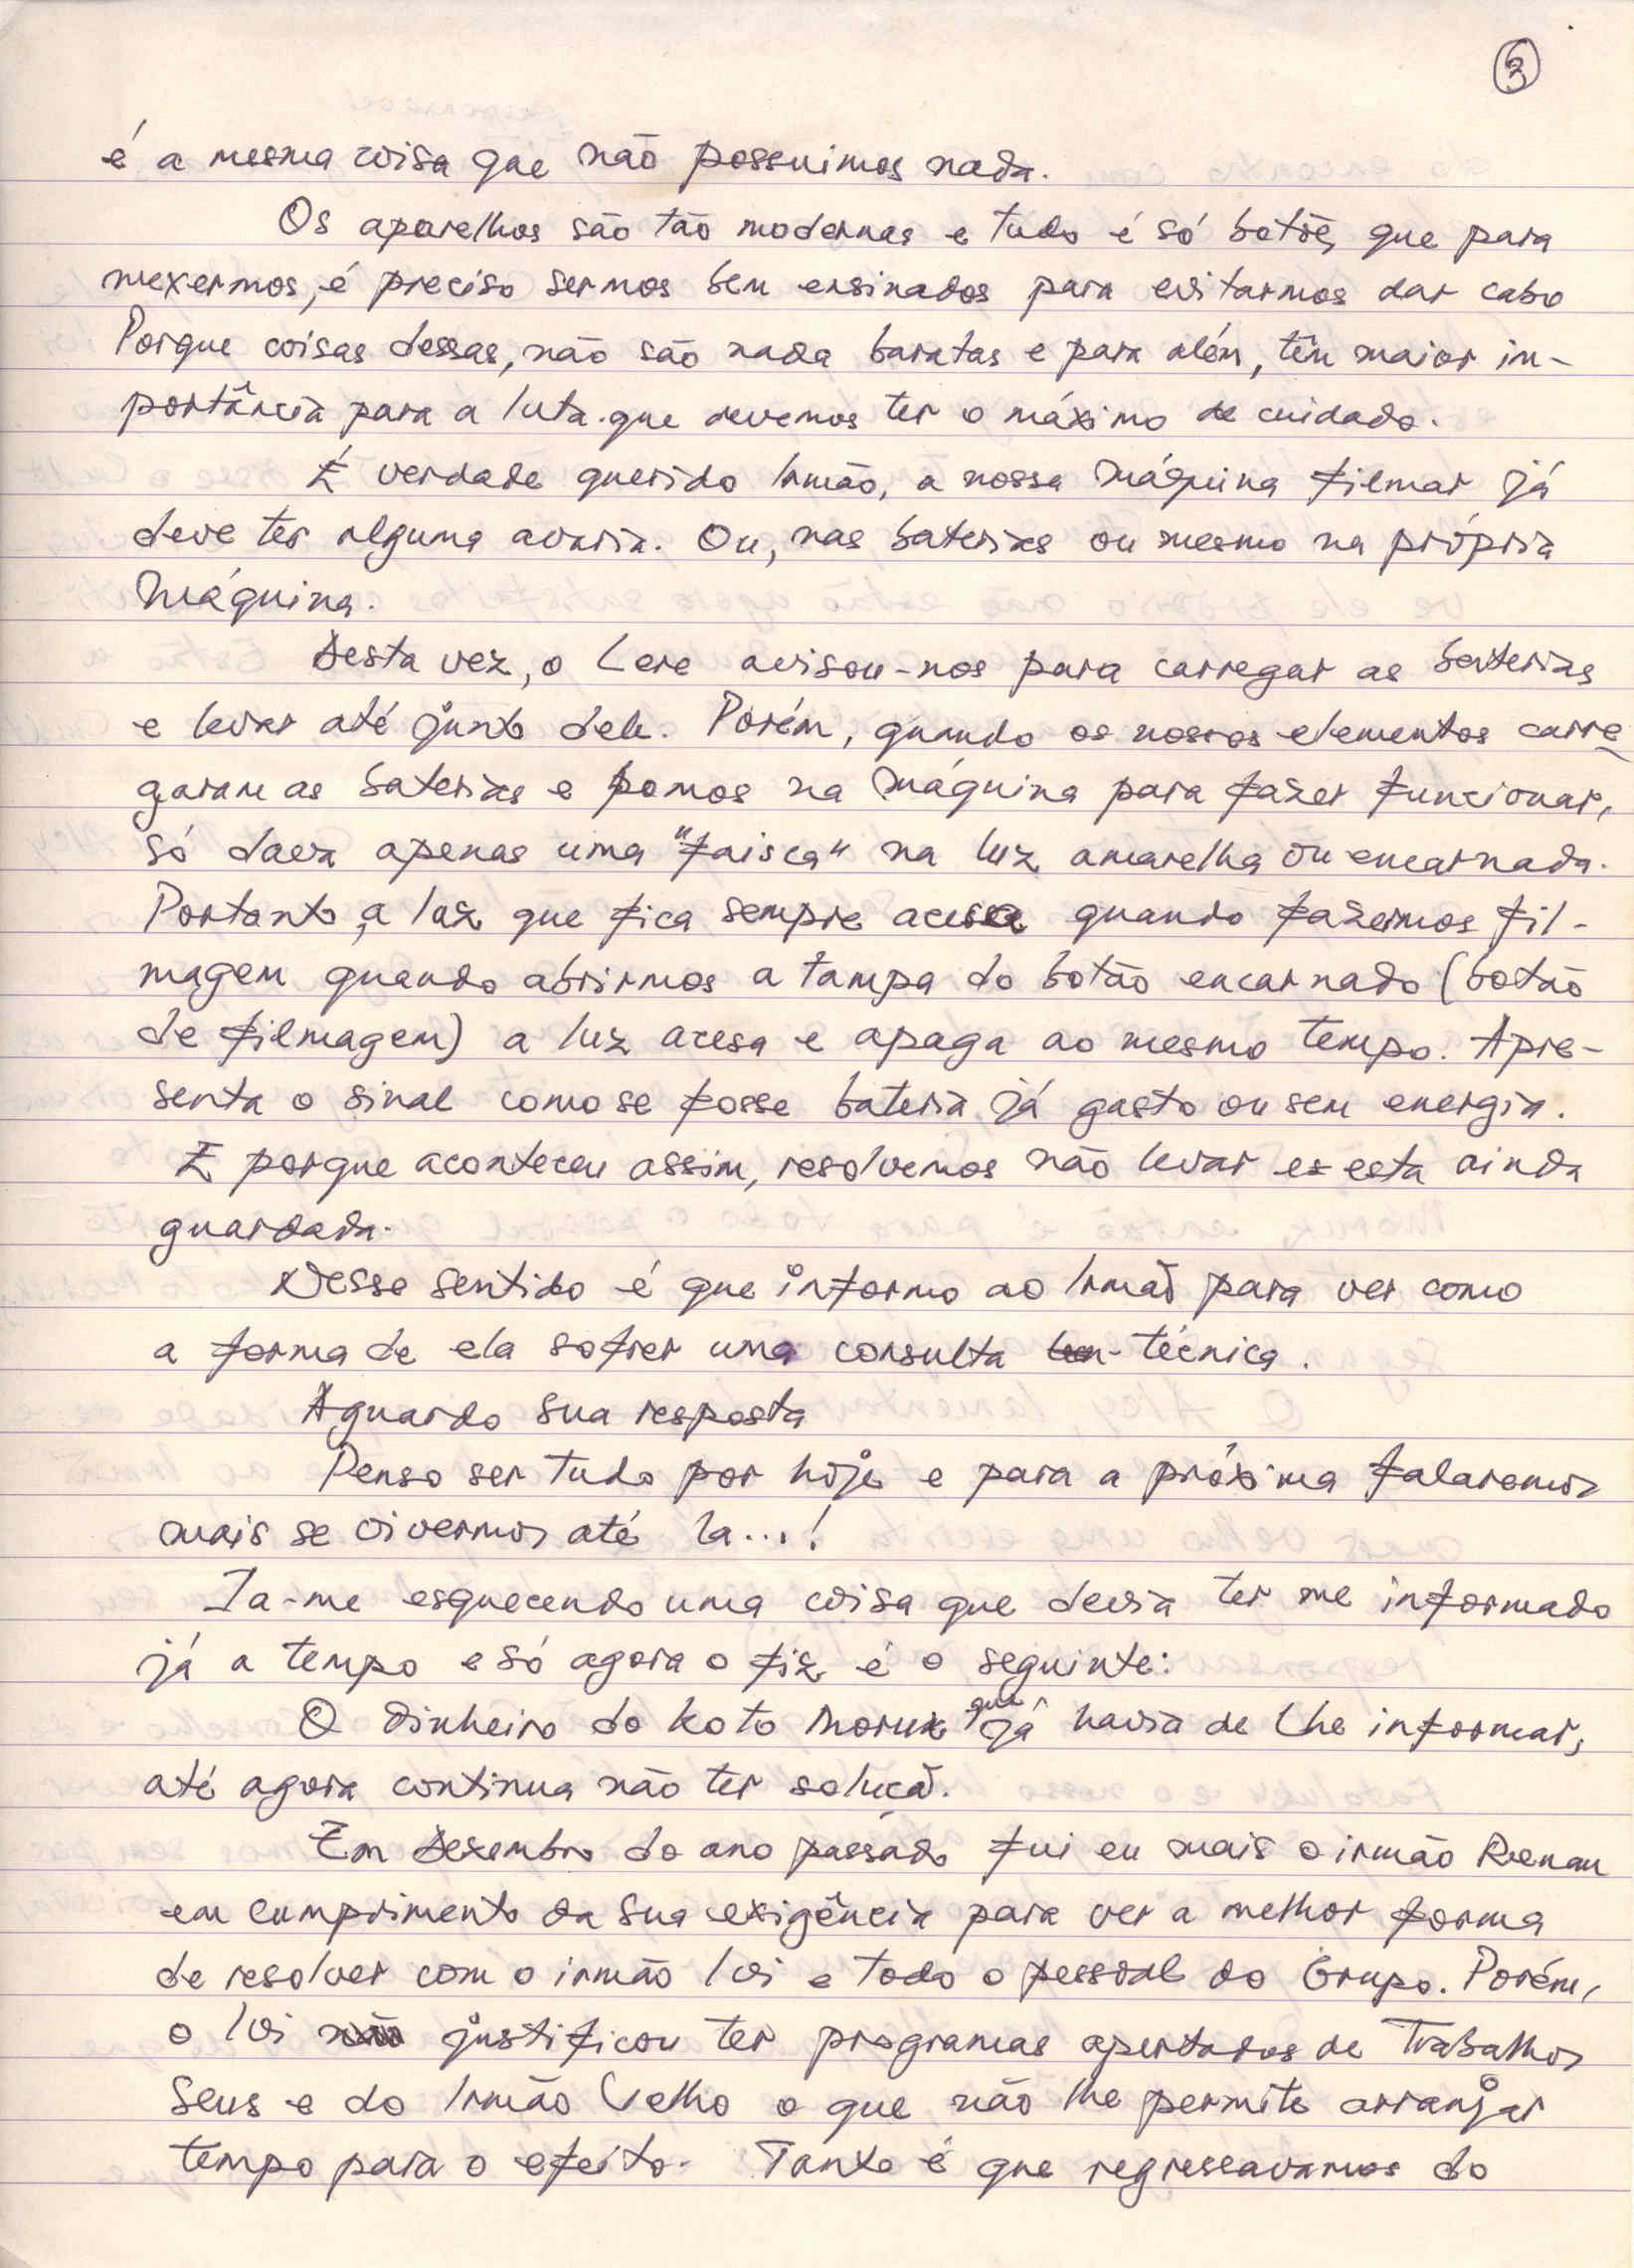 3
é a mesma coisa que não possuimos nada.
Os aparelhos são tão modernas e tudo é só botõe, que para
mexermos, é preciso sermos bem ensinados para evitarmos dar cabo
Porque coisas dessas, não são nada baratas e para além, têm maior im-
portância para a luta. que devemos ter o máximo de cuidado.
É verdade querido Irmão, a nossa Máquina filmar já
deve ter alguma avaria. Ou, nas baterias ou mesmo na própria
Máquina.
Desta vez, o Lere avisou-nos para carregar as baterias
e levar até junto dele. Porém, quando os nossos elementos carre
garam as baterias e pomos na Máquina para fazer funcionar,
só dava apenas uma "faisca" na luz amarelha ou encarnada.
Portanto, a luz que fica sempre acesa quando fazermos fil-
magem quando abrirmos a tampa do botão encarnado (botão
de filmagem) a luz acesa e apaga ao mesmo tempo. Apre-
senta o sinal como se fosse bateria já gasto ou sem energia.
E porque aconteceu assim, resolvemos não levar e esta ainda
guardada.
Nesse sentido é que informo ao Irmão para ver como
a forma de ela sofrer uma consulta técnica.
Aguardo sua resposta
Penso ser tudo por hoje e para a próxima falaremos
mais se vivermos até la...!
Ia-me esquecendo uma coisa que devia ter me informado
já a tempo e só agora o fiz é o seguinte:
O dinheiro do Koto Moruk que já havia de lhe informar,
até agora continua não ter solucã.
Em Dezembro do ano passado fui eu mais o irmão Renan
em cumprimento da sua exigência para ver a melhor forma
de resolver com o irmão Loi e todo o pessoal do Grupo. Porém,
o Loi justificou ter programas apertados de Trabalhos
Seus e do Irmão Velho o que não lhe permite arranjar
tempo para o efeito. Tanto é que regressavamos do